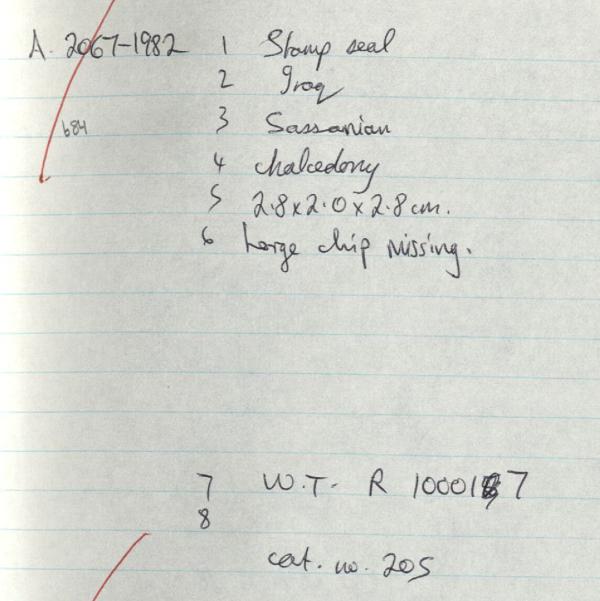 A. 2067-1982 1 Stamp seal
2 Iraq
684 3 Sassanian
4 chalcedony
5 2.8 x 2.0 x 2.8 cm.
6 Large chip missing.
7 W.T. R 10001 7
8
cat. no. 205